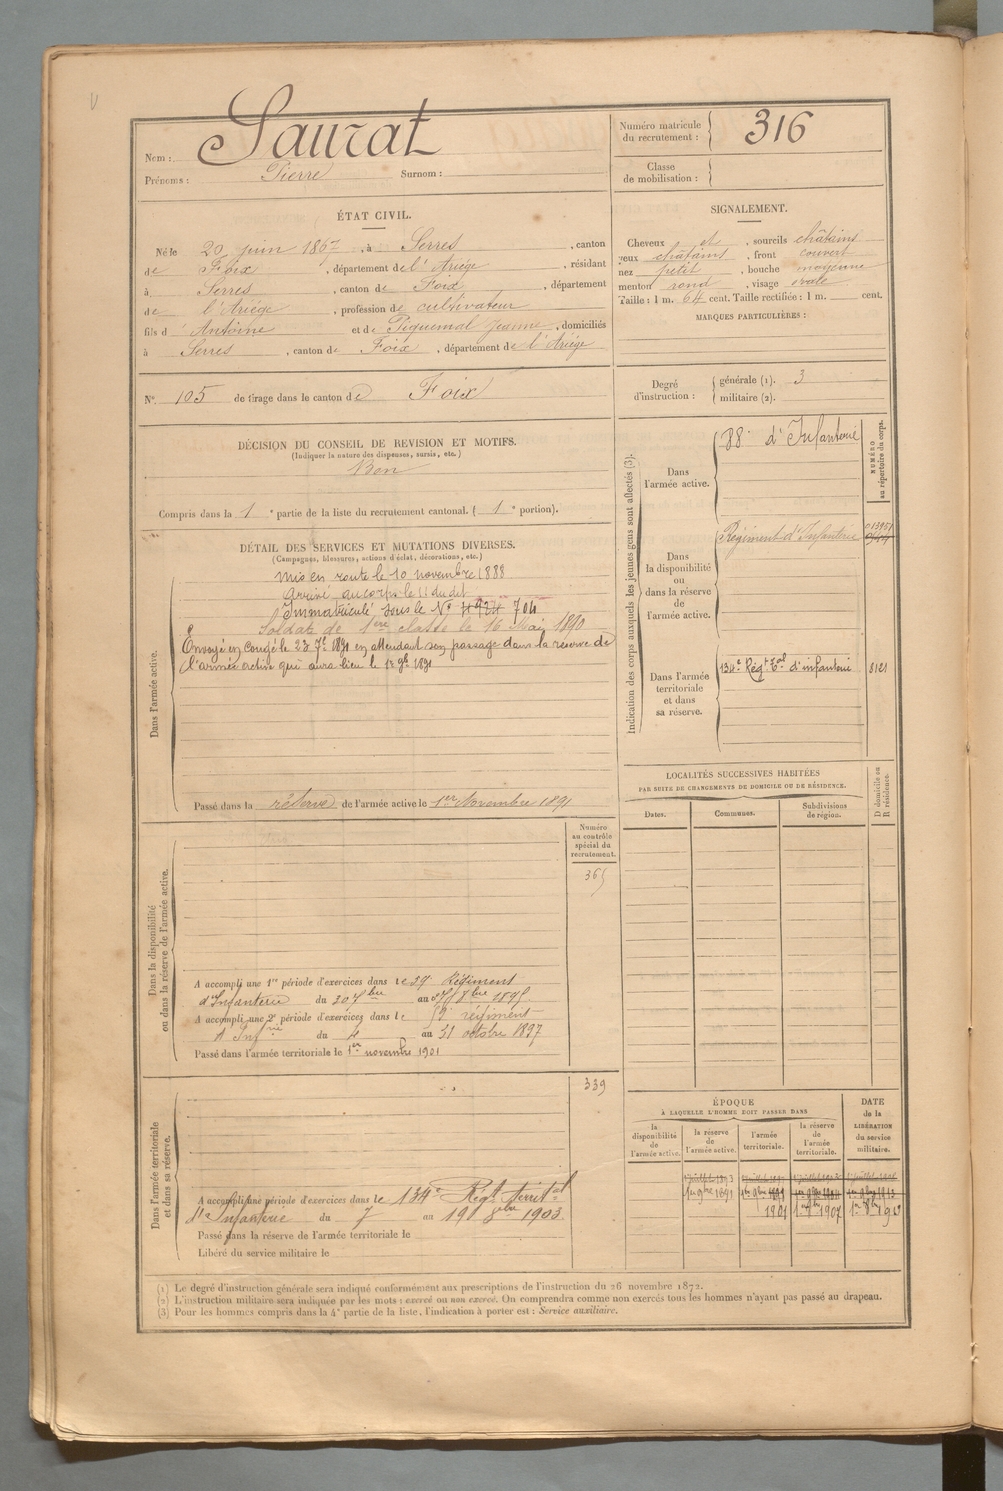 Nom : Saurat
Prénoms : Pierre Surnom :
Numéro matricule du recrutement : 316
Classe de mobilisation :
ÉTAT CIVIL.
Né le 20 juin 1867, à Serres, canton
de Foix, département de l'Ariège, résidant
à Serres, canton de Foix, département
de l'Ariège, profession de cultivateur
fils d'Antoine et de Piquemal Jeanne, domiciliés
à Serres, canton de Foix, département de l'Ariège
N° 105 de tirage dans le canton de Foix
SIGNALEMENT.
Cheveux et, sourcils châtains
yeux châtains, front couvert
nez petit, bouche moyenne
menton rond, visage ovale
Taille : 1 m. 64 cent. Taille rectifiée : 1 m. cent.
MARQUES PARTICULIÈRES :
Degré d'instruction : générale (1). 3
militaire (2).
DÉCISION DU CONSEIL DE REVISION ET MOTIFS.
(Indiquer la nature des dispenses, sursis, etc.)
Bon
Compris dans la 1e partie de la liste du recrutement cantonal. (1e portion).
DÉTAIL DES SERVICES ET MUTATIONS DIVERSES.
(Campagnes, blessures, actions d'éclat, décorations, etc.)
Dans l'armée active.
Mis en route le 10 novembre 1888
Arrivé au corps le 11 du dit
Immatriculé sous le N° 704
Soldat de 1ère classe le 16 Mai 1890
Envoyé en congé le 23 7bre 1891 en attendant son passage dans la réserve de
l'armée active qui aura lieu le 1er 9bre 1891
Passé dans la réserve de l'armée active le 1er Novembre 1891
Indication des corps auxquels les jeunes gens sont affectés (3).
NUMÉRO au répertoire du corps.
Dans l'armée active.
88e d'Infanterie
Dans la disponibilité ou dans la réserve de l'armée active.
Régiment d'Infanterie
Dans l'armée territoriale et dans sa réserve.
134e Régt Tal d'infanterie
LOCALITÉS SUCCESSIVES HABITÉES
PAR SUITE DE CHANGEMENTS DE DOMICILE OU DE RÉSIDENCE.
Dates. Communes. Subdivisions de région. D domicile ou R résidence.
Dans la disponibilité ou dans la réserve de l'armée active.
Numéro au contrôle spécial du recrutement.
365
A accompli une 1re période d'exercices dans le 59e Régiment
d'Infanterie du au
A accompli une 2e période d'exercices dans le régiment
du 4 au 31 octobre 1897
Passé dans l'armée territoriale le 1er novembre 1901
Dans l'armée territoriale et dans sa réserve.
339
A accompli une période d'exercices dans le 134e Régt territal
d'Infanterie du 7 au 19 1903
Passé dans la réserve de l'armée territoriale le
Libéré du service militaire le
ÉPOQUE
À LAQUELLE L'HOMME DOIT PASSER DANS
la disponibilité de l'armée active. la réserve de l'armée active. l'armée territoriale. la réserve de l'armée territoriale.
DATE de la LIBÉRATION du service militaire.
1er 9bre 1891
1901
(1) Le degré d'instruction générale sera indiqué conformément aux prescriptions de l'instruction du 26 novembre 1872.
(2) L'instruction militaire sera indiquée par les mots : exercé ou non exercé. On comprendra comme non exercés tous les hommes n'ayant pas passé au drapeau.
(3) Pour les hommes compris dans la 4e partie de la liste, l'indication à porter est : Service auxiliaire.